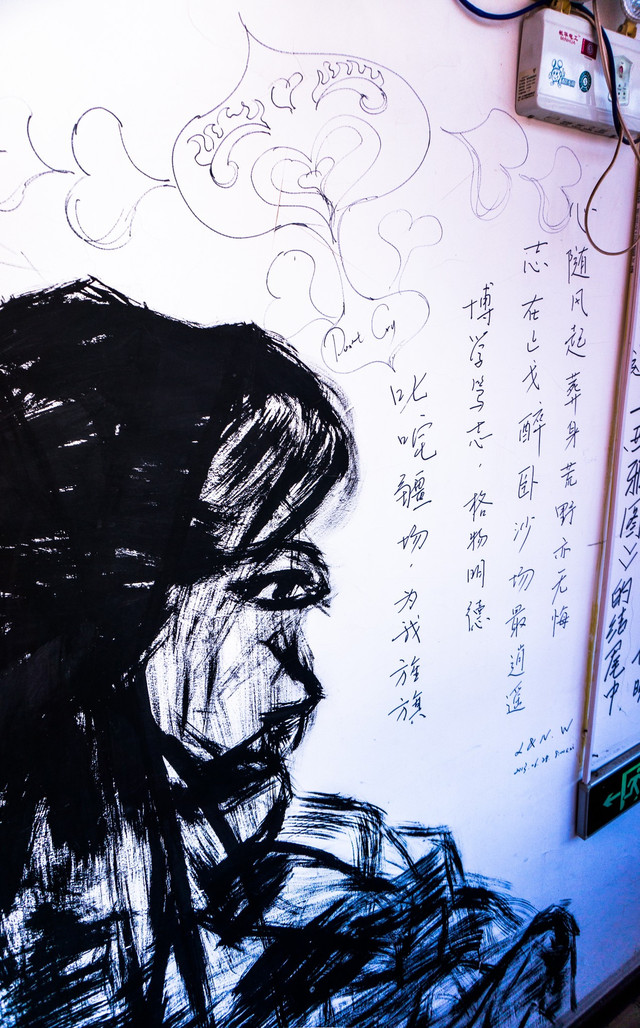 Dont Cry
心随风起葬身荒野亦无悔
志在止戈醉卧沙场最逍遥
博学笃志，格物明德
叱咤疆场，为我旌旗
L & N. W
》的结尾中